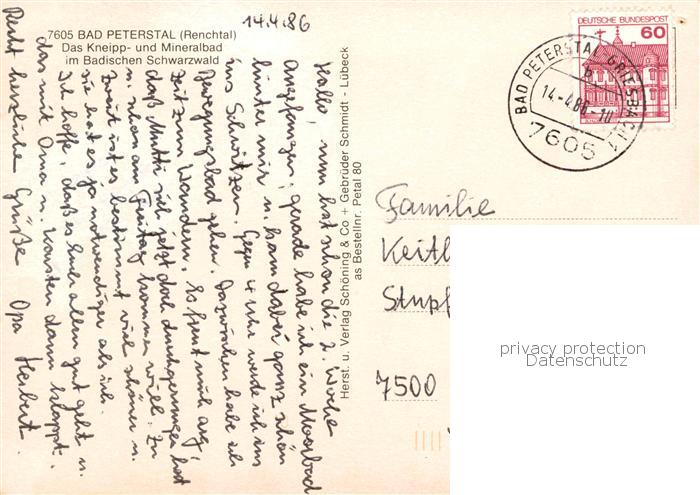 14.4.86
7605 BAD PETERSTAL (Renchtal)
Das Kneipp- und Mineralbad
im Badischen Schwarzwald
Hallo, nun hat schon die 2. Woche
angefangen, gerade habe ich ein Moorbad
hinter mir u. kam dabei ganz schön
ins Schwitzen. Gegen 4 Uhr werde ich ins
Bewegungsbad gehen. Dazwischen habe ich
Zeit zum Wandern. Es freut mich arg,
daß Mutti sich jetzt doch durchgerungen hat
u. schon am Freitag kommen will. Zu
zweit ist es bestimmt viel schöner u.
sie hat es ja notwendiger als ich.
Ich hoffe, daß es Euch allen gut geht u.
das mit Oma u. Karsten dann klappt.
Recht herzliche Grüße Opa Herbert.
Herst. u. Verlag Schöning & Co + Gebrüder Schmidt - Lübeck
as Bestellnr. Petal 80
DEUTSCHE BUNDESPOST
60
BAD PETERSTAL-GRIESBACH 1
b
14.-4.86.-10
7605
Familie
Keitl
Stupf
7500
privacy protection
Datenschutz